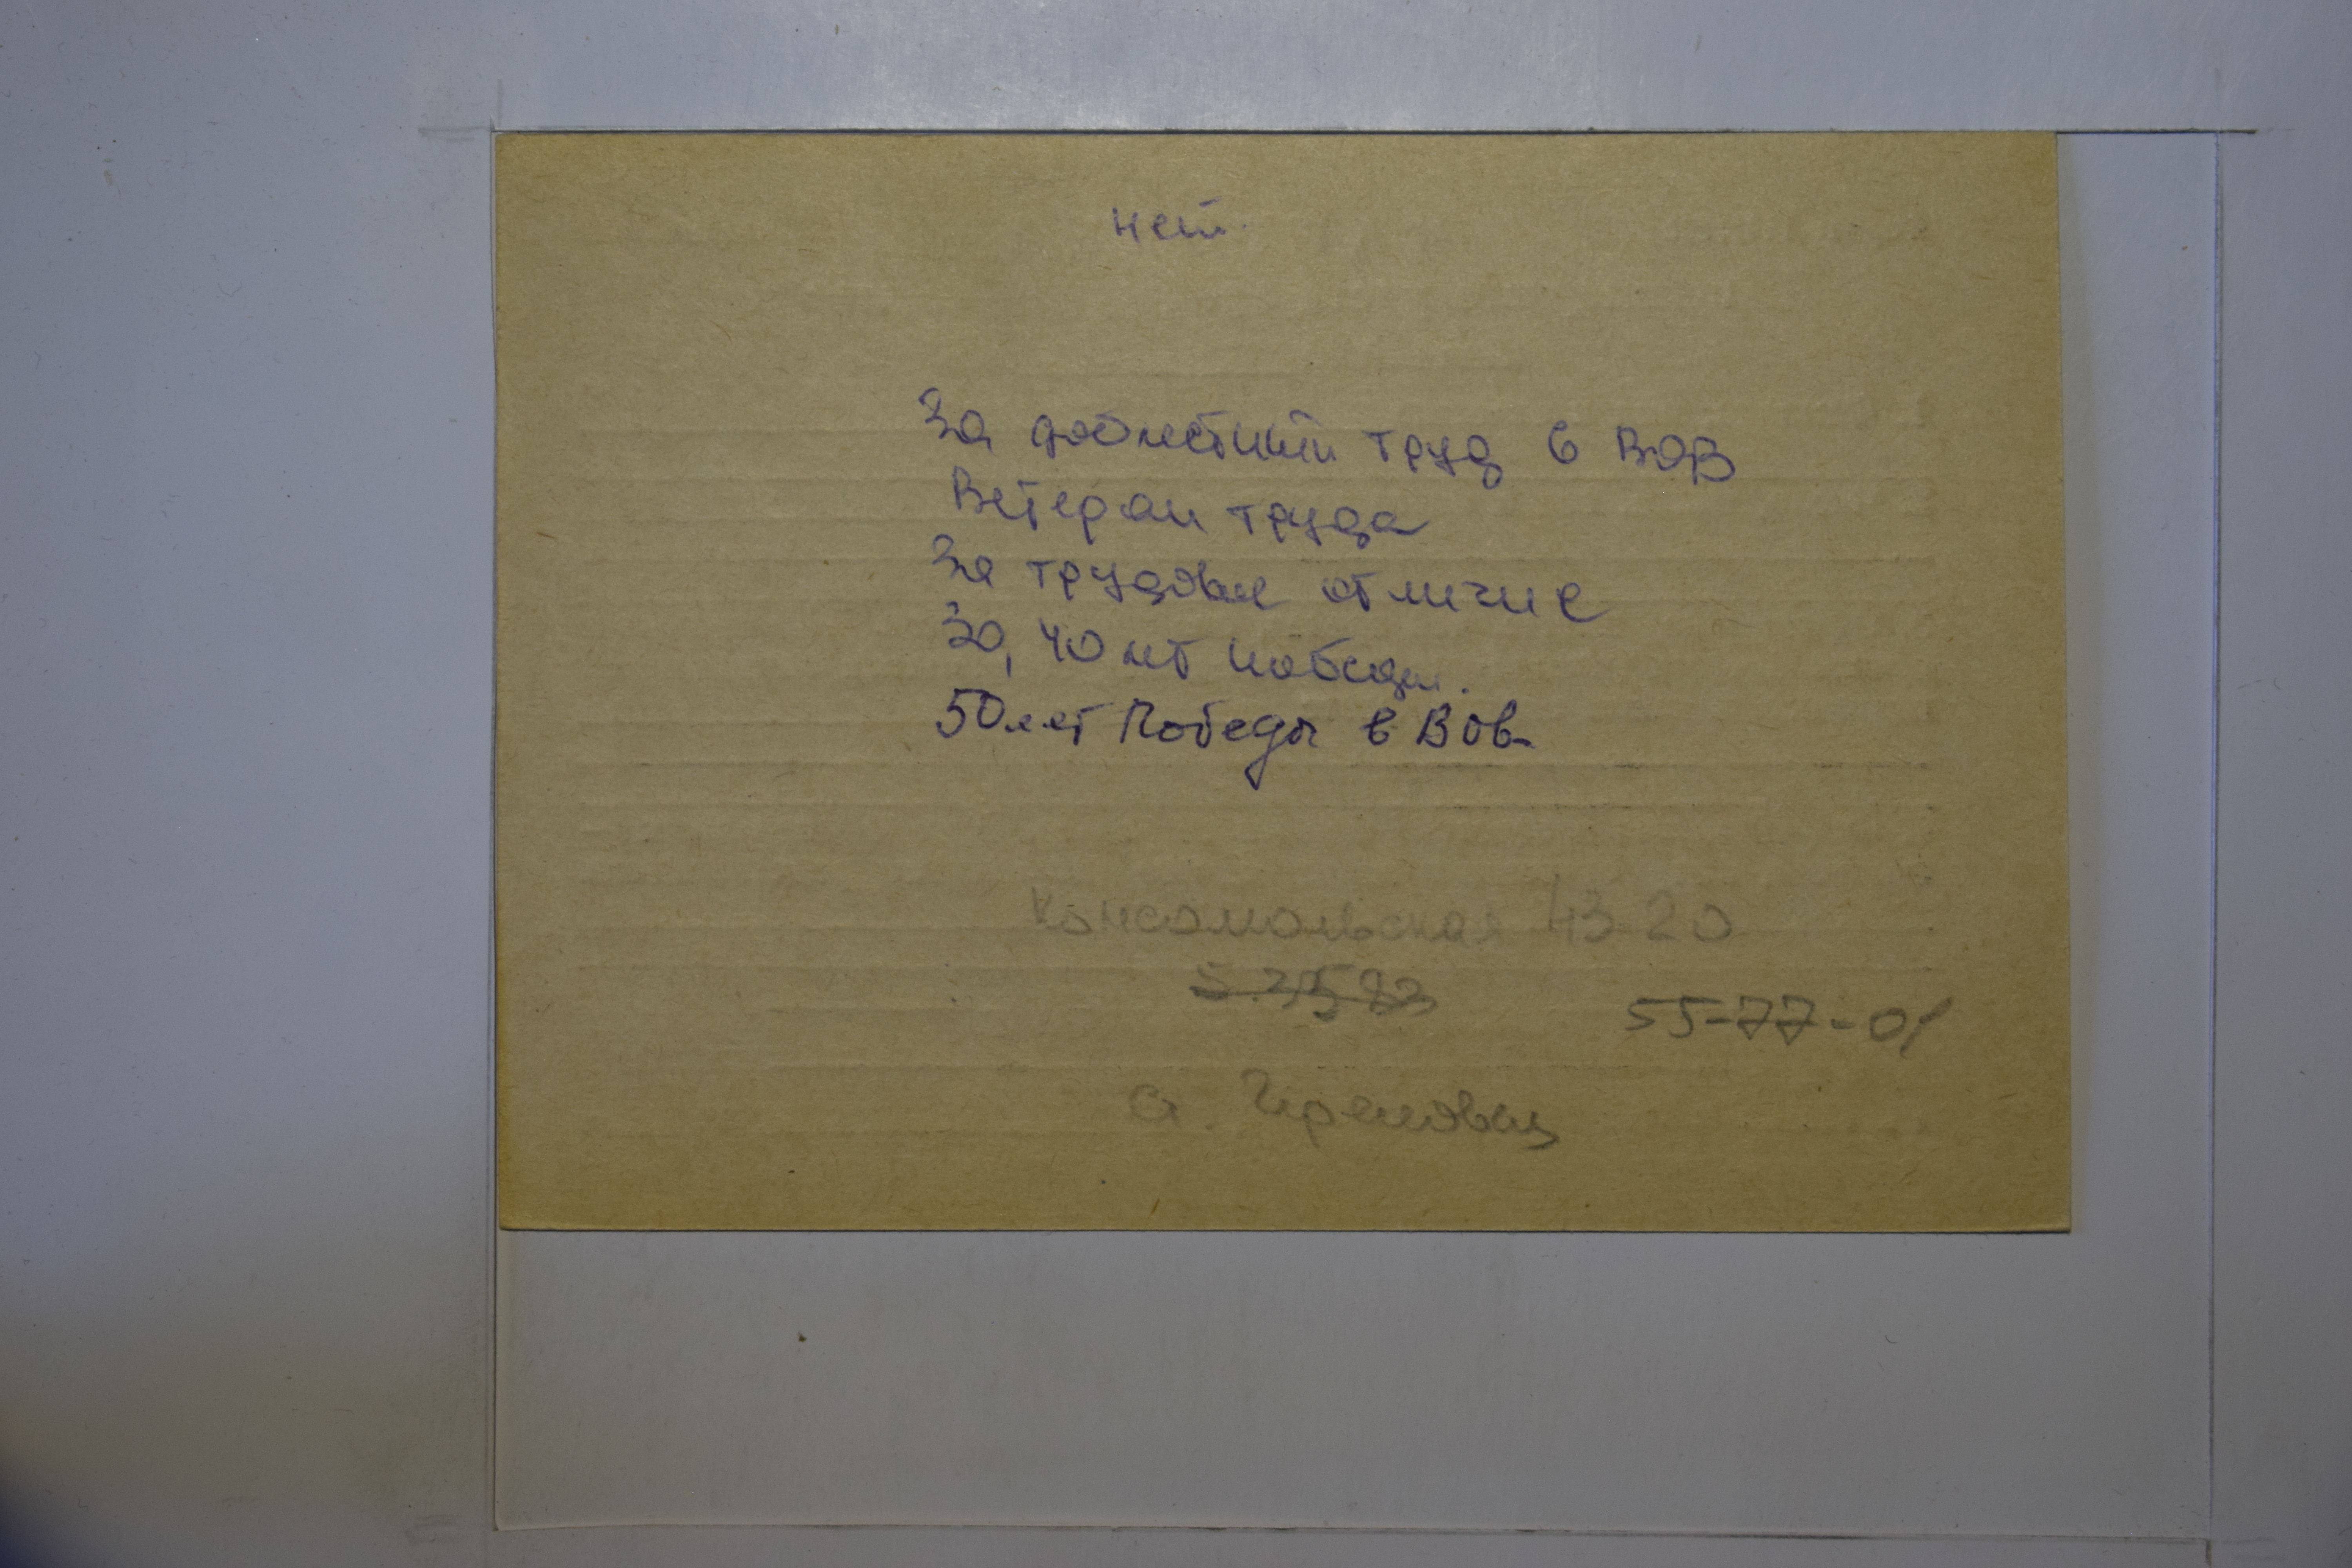 нет.
За доблестный труд в ВОВ
Ветеран труда
За трудовое отличие
За, 40 лет победы.
50 лет Победы в ВОВ
Комсомольская 43 20
55-77-01
а.